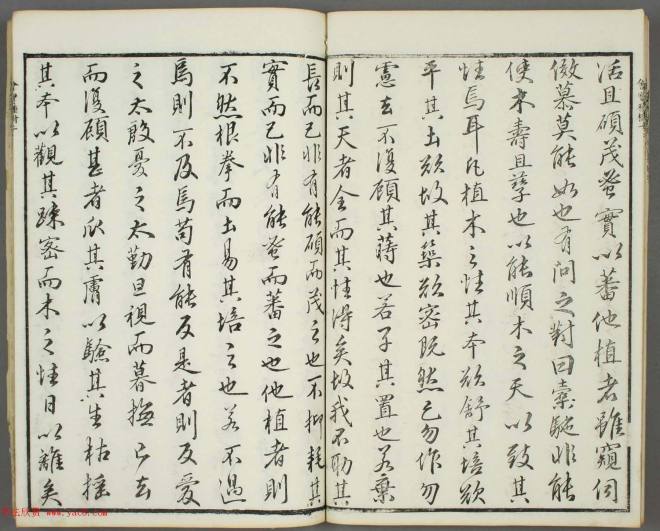 活且碩茂蚤實以蕃他植者雖窺伺
傚慕莫能如也有問之對曰橐駝非能
使木壽且孳也以能順木之天以致其
性焉耳凡植木之性其本欲舒其培欲
平其土欲故其築欲密既然已勿動勿
慮去不復顧其蒔也若子其置也若棄
則其天者全而其性得矣故我不害其
長而已非有能碩而茂之也不抑耗其
實而已非有能蚤而蕃之也他植者則
不然根拳而土易其培之也若不過
焉則不及焉苟有能反是者則又愛
之太殷憂之太勤旦視而暮撫已去
而復顧甚者爪其膚以驗其生枯搖
其本以觀其疎密而木之性日以離矣
书法欣赏 www.yac8.com